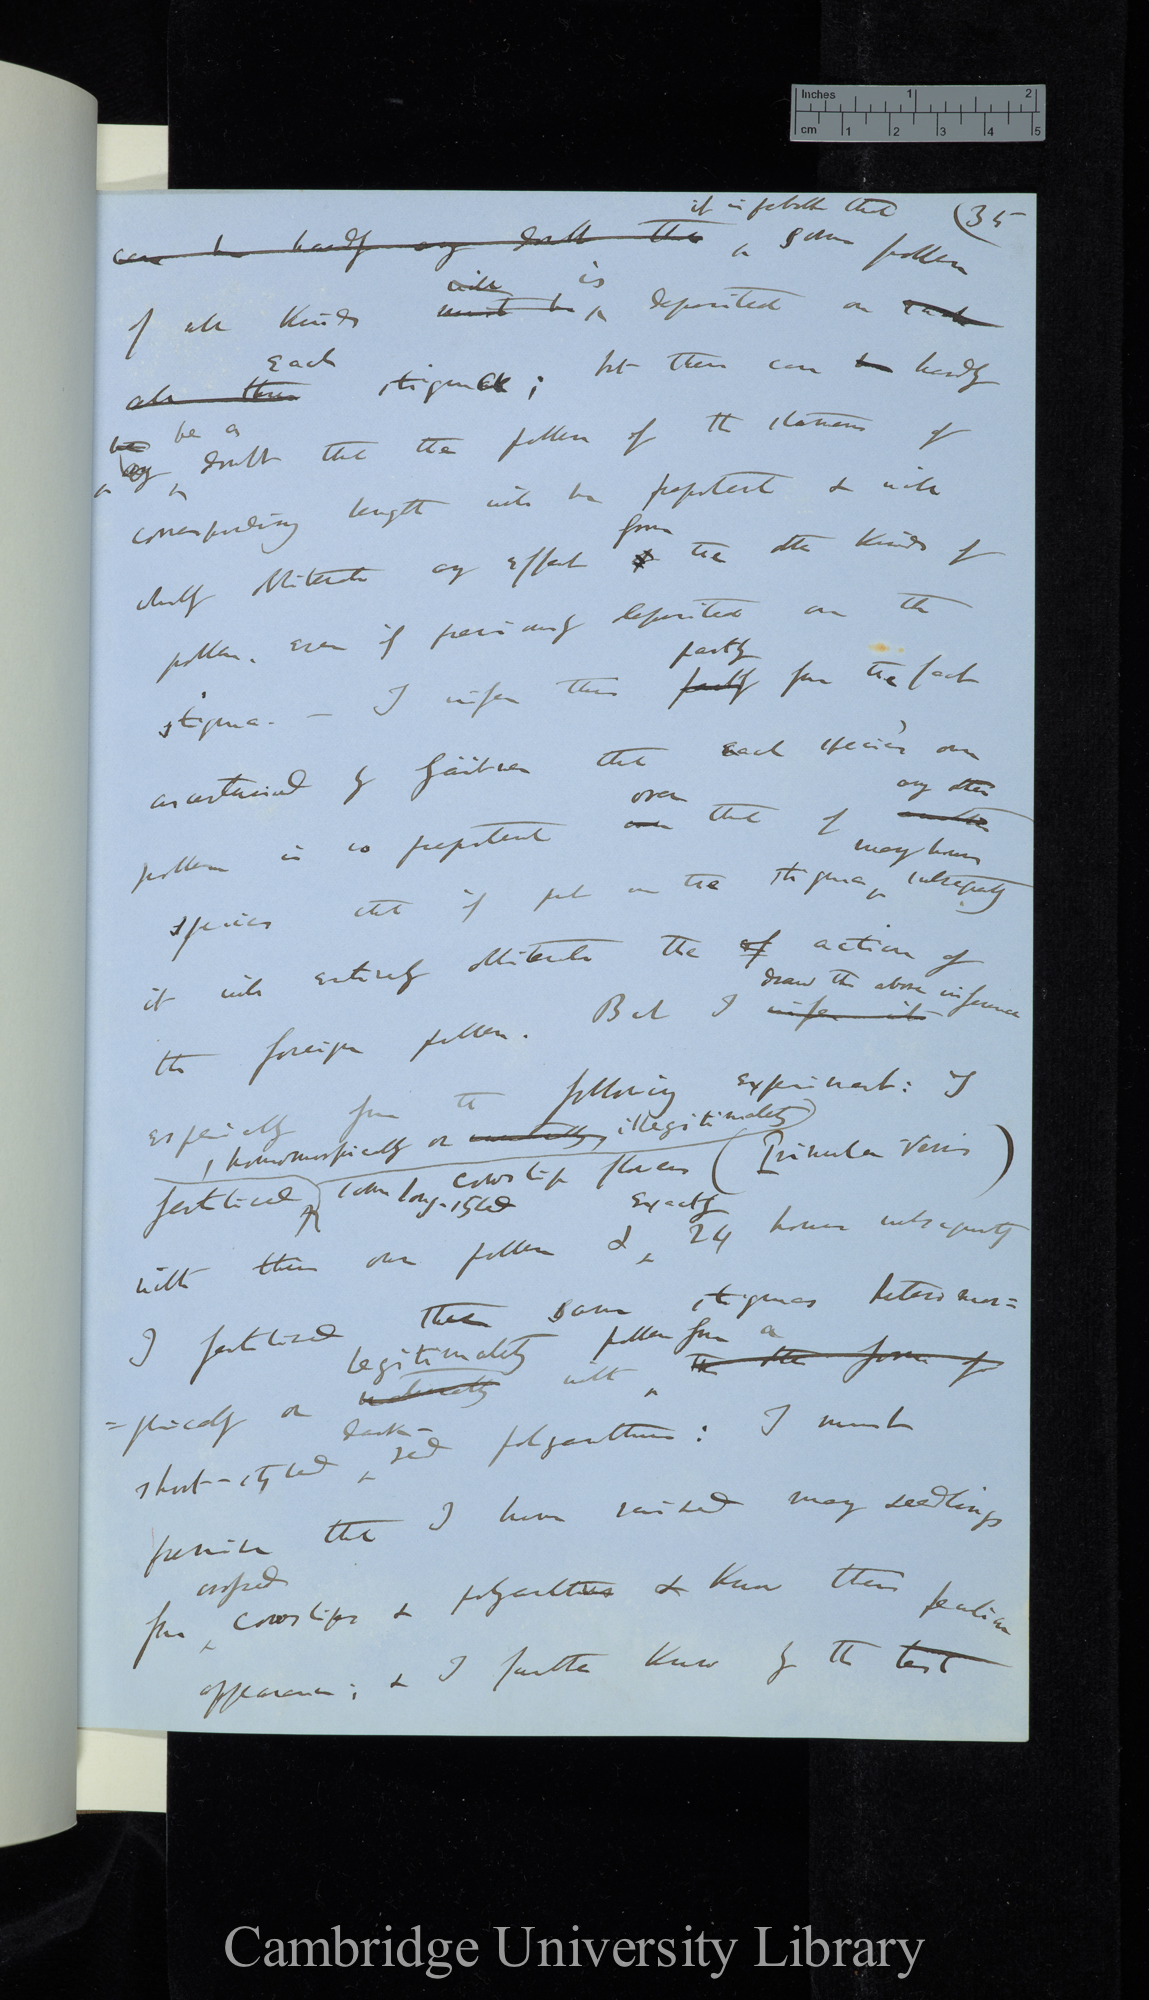 Inches 1 2
cm 1 2 3 4 5
(35
it is probable that
can be hardly any doubt that ‸ some pollen
will is
of all kinds must be ‸ deposited on each
each
all three stigmas; but there can be hardly
be be a
any doubt that the pollen of the stamens of
corresponding length will be prepotent & will
from
wholly obliterate any effect the other kinds of
pollen, even if previously deposited on the
partly
stigma. — I infer this partly from the fact
ascertained by Gärtner that each species' own
over any other
pollen is so prepotent over that of another
many hours
species that if put on the stigma ‸ subsequently
it will entirely obliterate the ef action of
draw the above inference
the foreign pollen. But I infer it
especially from the following experiment: I
, homomorphically or illegitimately
fertilised some long-styled cowslip flowers (Primula veris)
exactly
with their own pollen & ‸ 24 hours subsequently
I fertilised these same stigmas heteromor=
legitimately pollen from a
=phically or naturally with ‸ the other form of
dark-
short-styled ‸ red polyanthus: I must
premise that I have raised many seedlings
crossed
from ‸ cowslips & polyanthus & know their peculiar
appearance; & I further know by the test
Cambridge University Library